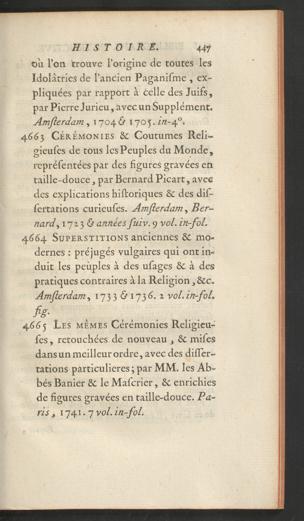 HISTOIRE. 447
où l'on trouve l'origine de toutes les
Idolâtries de l'ancien Paganiſme, ex-
pliquées par rapport à celle des Juifs,
par Pierre Jurieu, avec un Supplément.
Amſterdam, 1704 & 1705. in-4°.
4663 CÉRÉMONIES & Coutumes Reli-
gieuſes de tous les Peuples du Monde,
repréſentées par des figures gravées en
taille-douce, par Bernard Picart, avec
des explications hiſtoriques & des diſ-
ſertations curieuſes. Amſterdam, Ber-
nard, 1723 & années ſuiv. 9 vol. in-fol.
4664 SUPERSTITIONS anciennes & mo-
dernes : préjugés vulgaires qui ont in-
duit les peuples à des uſages & à des
pratiques contraires à la Religion, &c.
Amſterdam, 1733 & 1736. 2 vol. in-fol.
fig.
4665 LES MÊMES Cérémonies Religieu-
ſes, retouchées de nouveau, & miſes
dans un meilleur ordre, avec des diſſer-
tations particulieres ; par MM. les Ab-
bés Banier & le Maſcrier, & enrichies
de figures gravées en taille-douce. Pa-
ris, 1741. 7 vol. in-fol.